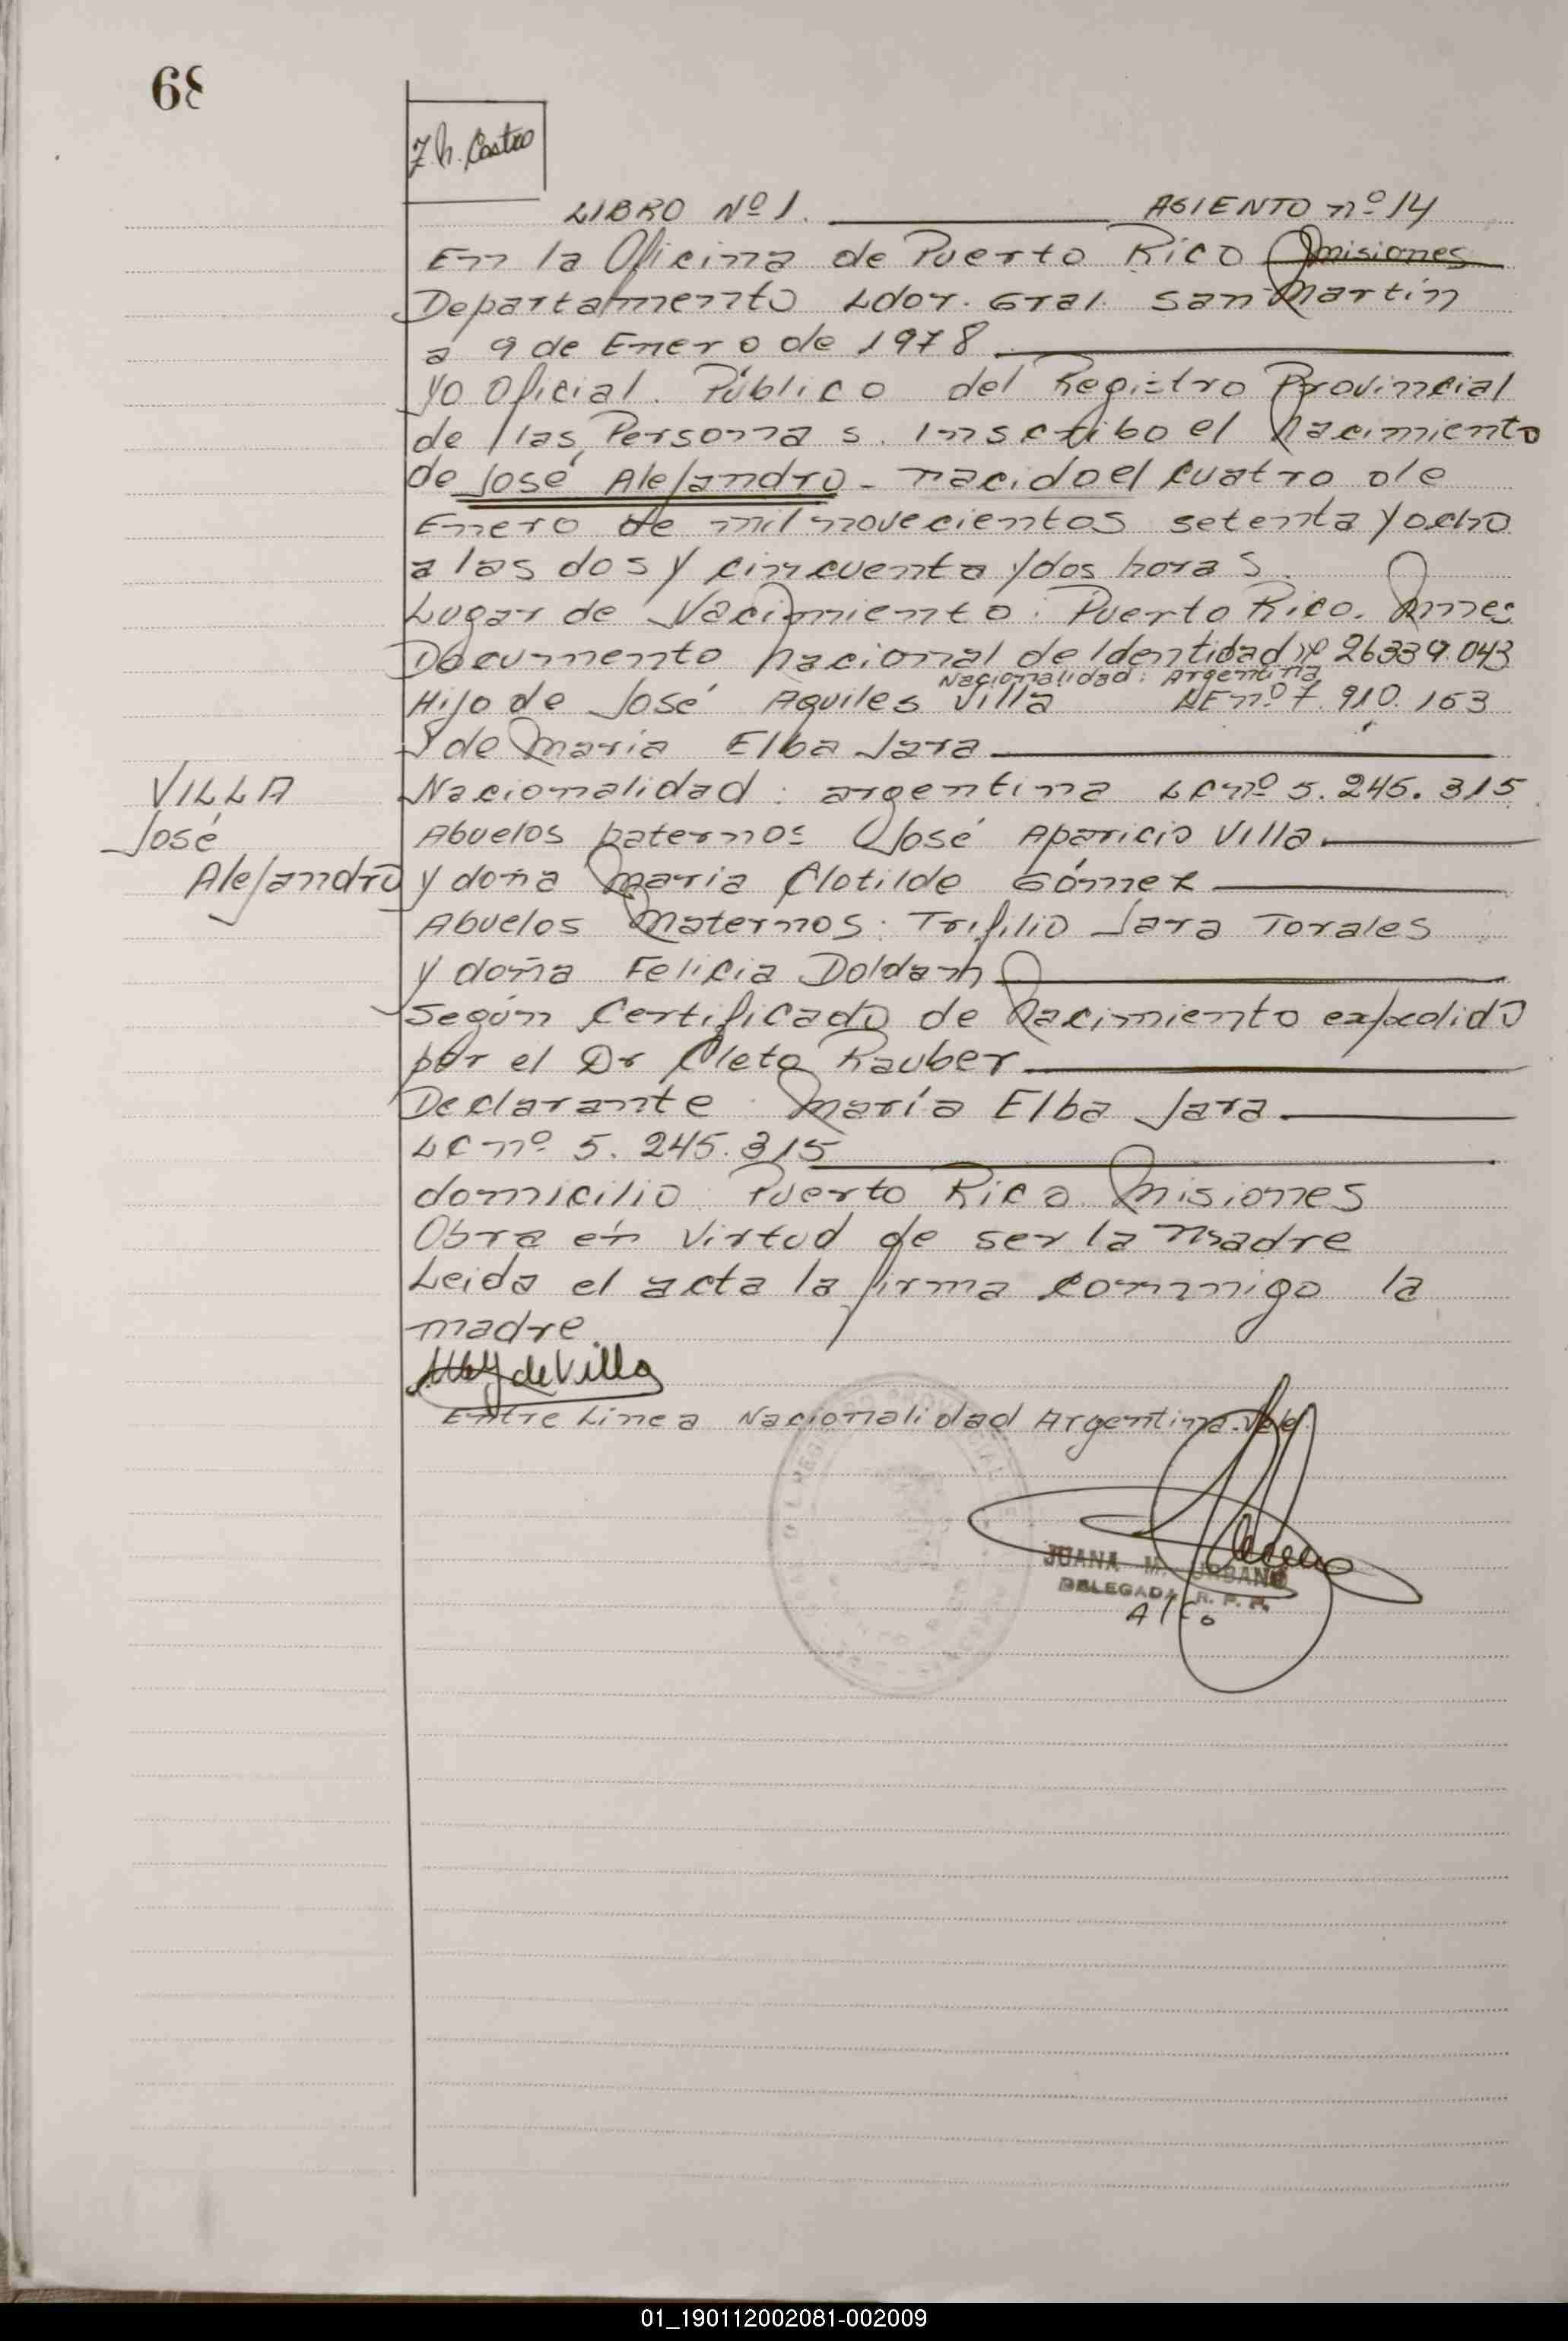 68
J. h. Castro
LIBRO Nº 1. ASIENTO nº 14
En la Oficina de Puerto Rico Misiones
Departamento Ldor. Gral. San Martín
a 9 de Enero de 1978
yo Oficial Público del Registro Provincial
de las Personas. Inscribo el Nacimiento
de José Alejandro - nacido el cuatro de
Enero de mil novecientos setenta y ocho
a las dos y cincuenta y dos horas.
Lugar de Nacimiento: Puerto Rico. Mnes
Documento Nacional de Identidad nº 26339.043
Nacionalidad: Argentina
Hijo de José Aquiles Villa LE nº 7.910.163
y de María Elba Jara
VILLA
José
Alejandro
Nacionalidad: argentina LC nº 5.245.315
Abuelos paternos José Aparicio Villa.
y doña Maria Clotilde Gómez
Abuelos Maternos: Trifilio Jara Torales
y doña Felicia Doldan
según Certificado de Nacimiento expedido
por el Dr Cleto Rauber
Declarante María Elba Jara
LC nº 5.245.315
domicilio: Puerto Rico Misiones
Obra en virtud de ser la Madre
Leida el acta la firma conmigo la
madre.
de Villa
Entre Linea Nacionalidad Argentina. Vale.
JUANA M. URBANO
DELEGADA R. P. P.
A/C.
01_190112002081-002009